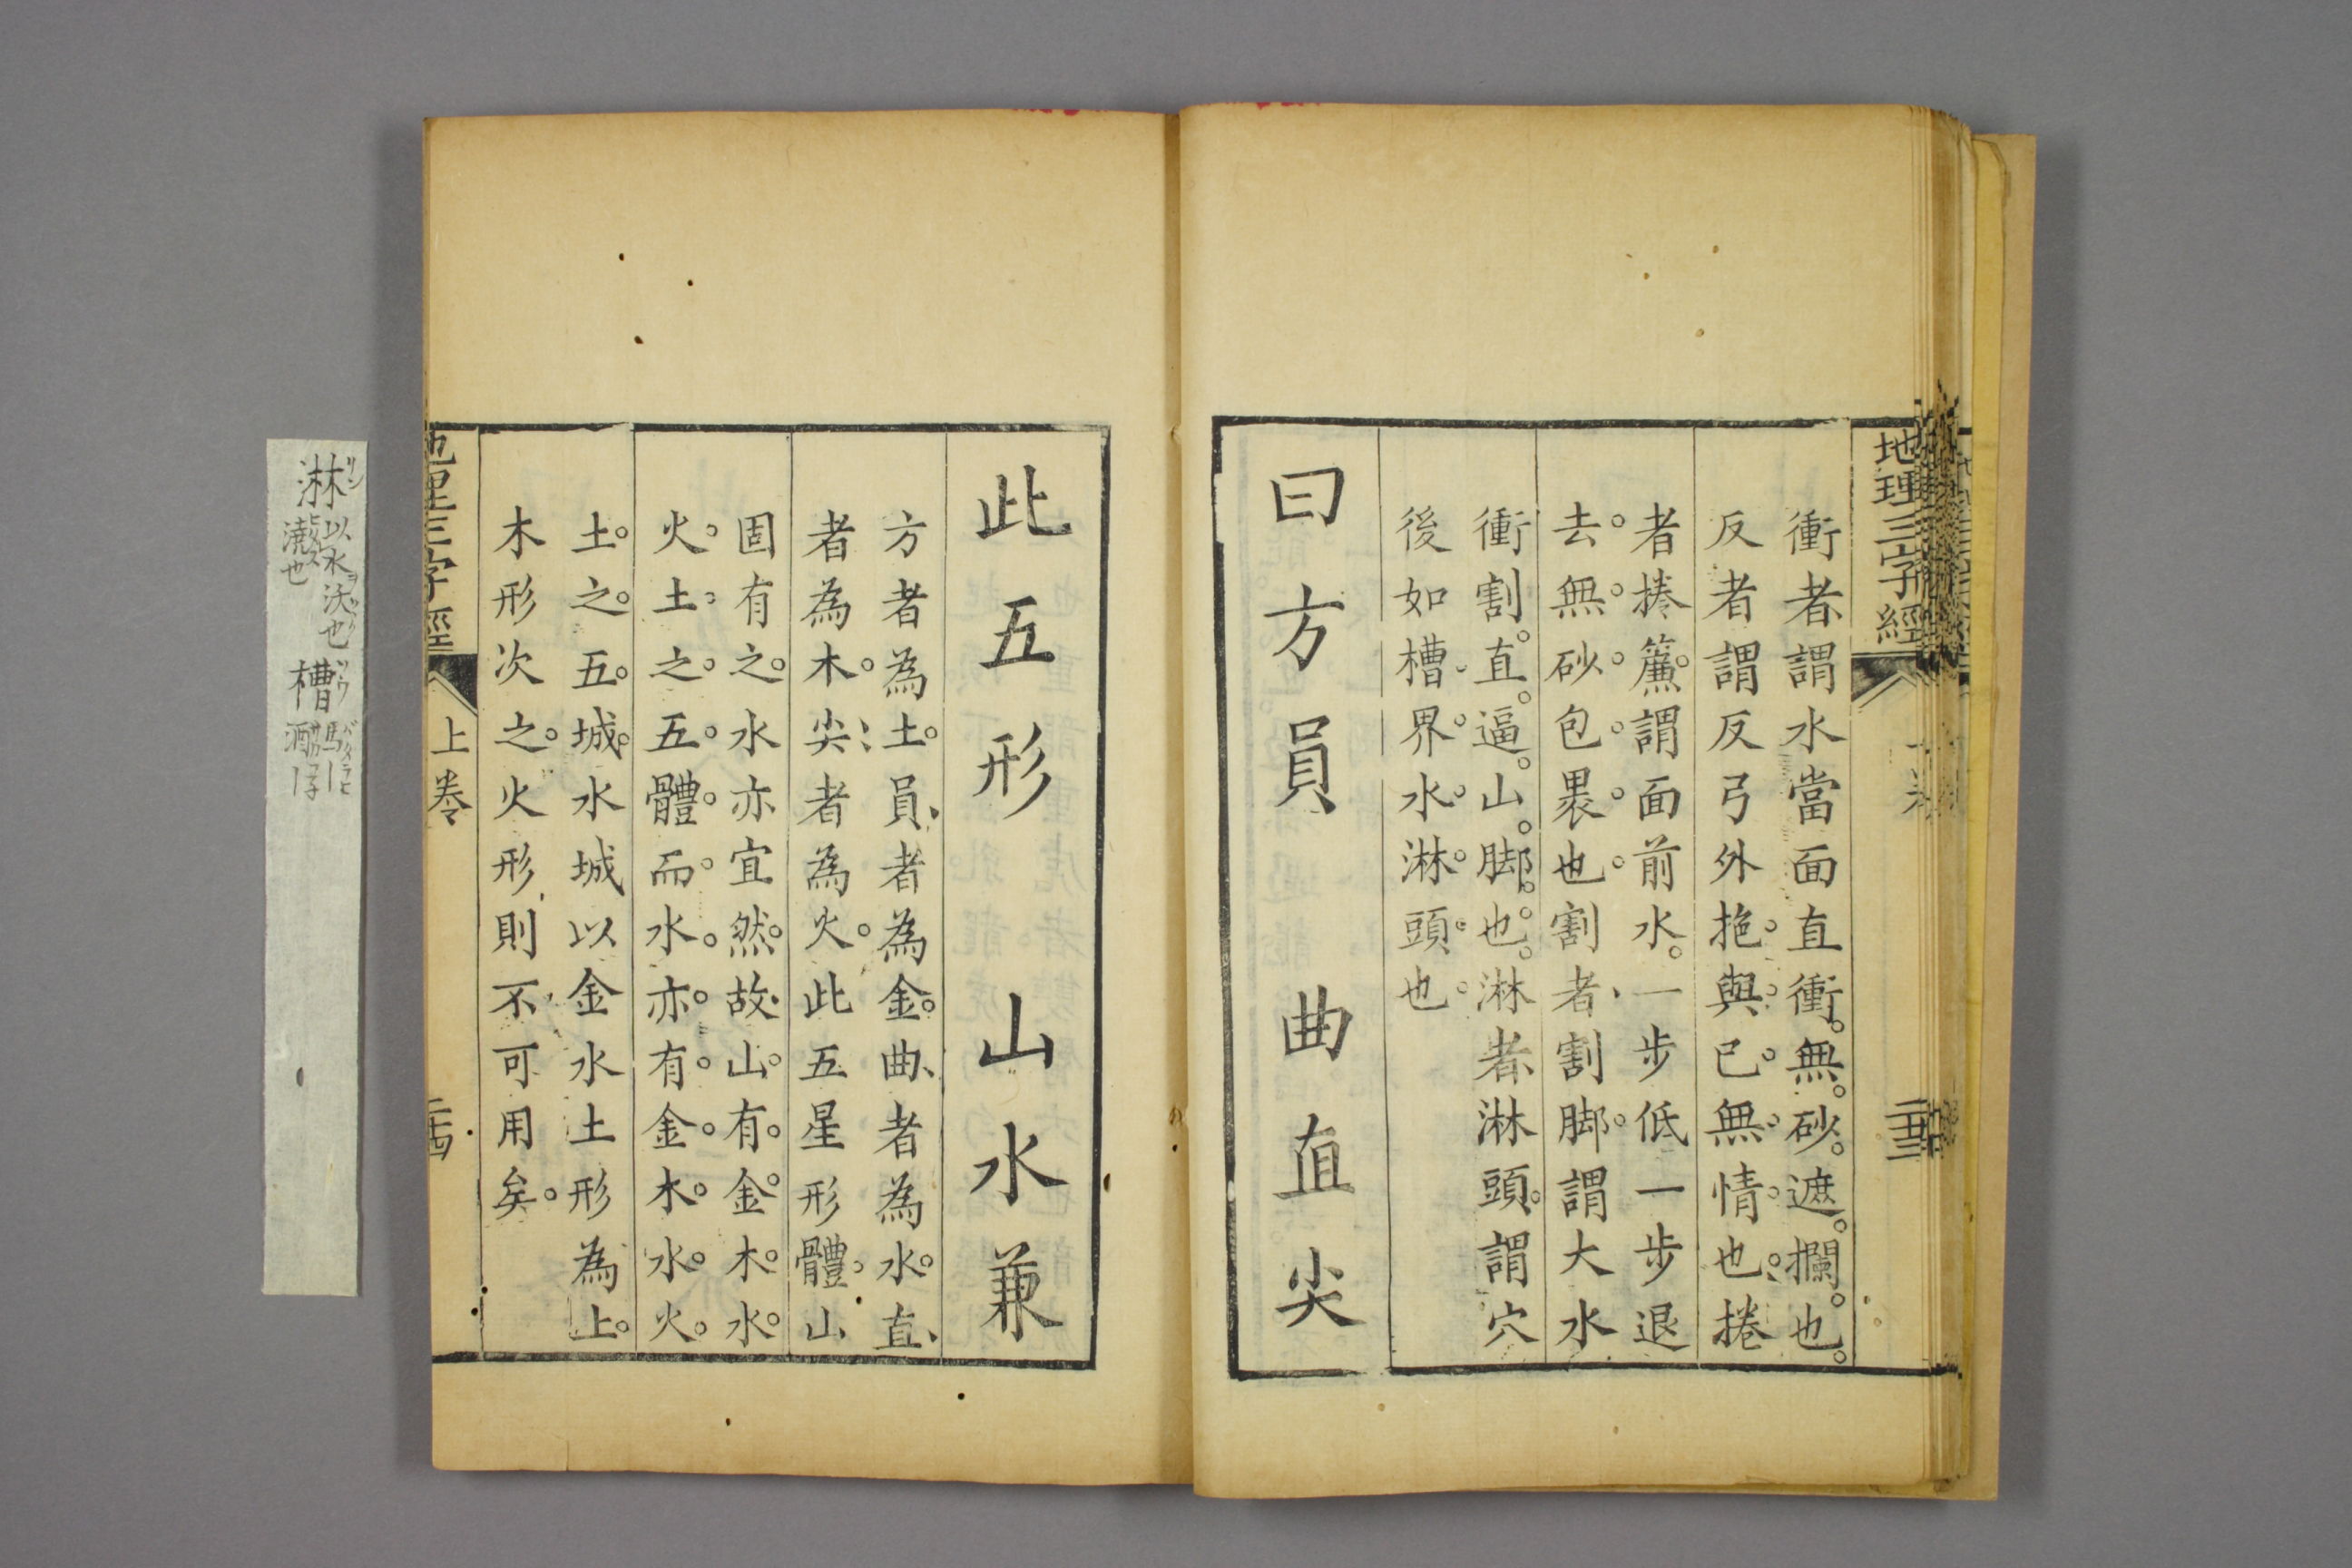 地理三字經
衝者謂水當面直衝。無。砂。遮。攔。也。
反者謂反弓外抱。與。已。無。情。也。捲
者捲簾。謂面前水。一步低一步退
去。無。砂。包。褁。也。割者、割脚。謂大水
衝割。直。逼。山。脚。也。淋者淋頭。謂穴
後如槽、界。水。淋。頭。也。
曰方員 曲直尖
此五形 山水兼
方者為土。員、者為金。曲、者為水。直、
者為木。尖、者為火。此五星形體。山
固有之。水亦宜然。故、山。有。金。木。水。
火。土。之。五。體。而。水。亦。有。金。木。水。火。
土。之。五。城。水城以金水土形為上。
木形次之。火形則不可用矣。
地理三字經 上卷 二十四
淋 リン 以水沃也
澆也
槽 馬〡
酒〡